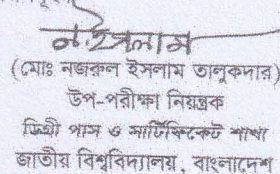 ন. ইসলাম
(মোঃ নজরুল ইসলাম তালুকদার)
উপ-পরীক্ষা নিয়ন্ত্রক
ডিগ্রী পাস ও সার্টিফিকেট শাখা
জাতীয় বিশ্ববিদ্যালয়, বাংলাদেশ